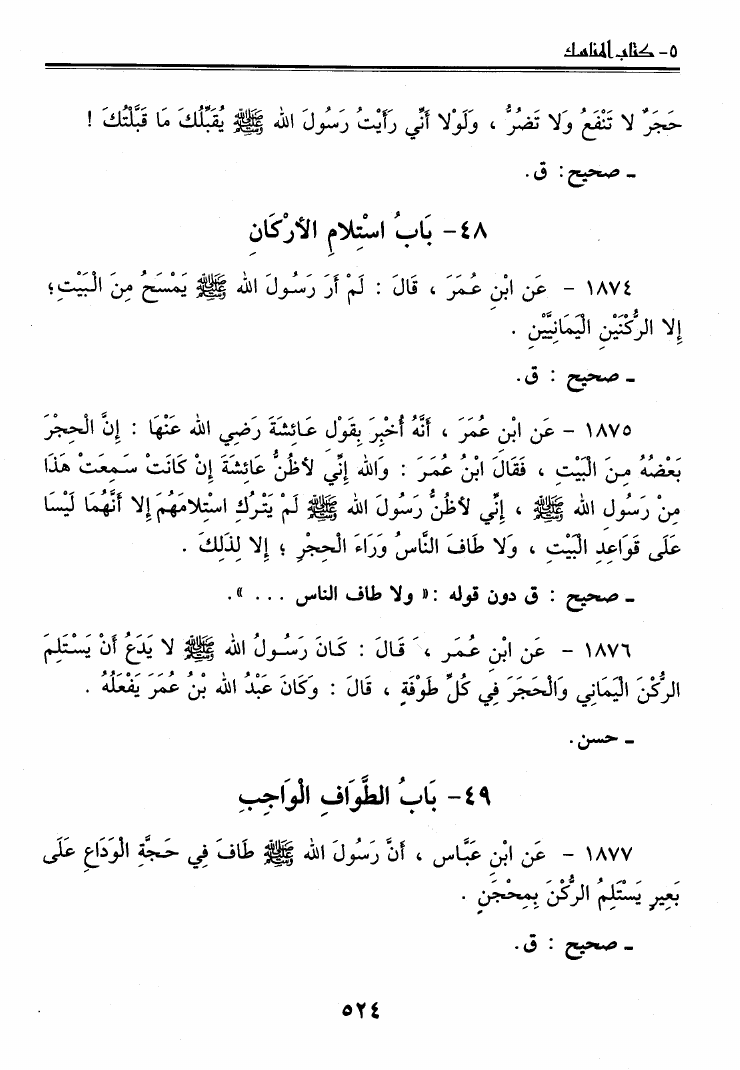 ٥- كتاب المناسك
حَجَرٌ لا تَنْفَعُ وَلا تَضُرُّ ، وَلَوْلا أَنِّي رَأَيْتُ رَسُولَ الله ﷺ يُقَبِّلُكَ مَا قَبَّلْتُكَ !
ـ صحيح: ق.
٤٨- بَابُ اسْتِلامِ الأَرْكَانِ
١٨٧٤ - عَن ابْنِ عُمَرَ ، قَالَ : لَمْ أَرَ رَسُولَ الله ﷺ يَمْسَحُ مِنَ الْبَيْتِ؛
إِلا الرُّكْنَيْنِ الْيَمَانِيَّيْنِ .
ـ صحيح : ق.
١٨٧٥ - عَن ابْنِ عُمَرَ ، أَنَّهُ أُخْبِرَ بِقَوْلِ عَائِشَةَ رَضِي الله عَنْهَا : إِنَّ الْحِجْرَ
بَعْضُهُ مِنَ الْبَيْتِ ، فَقَالَ ابْنُ عُمَرَ : وَالله إِنِّي لأظُنُّ عَائِشَةَ إِنْ كَانَتْ سَمِعَتْ هَذَا
مِنْ رَسُولِ الله ﷺ ، إِنِّي لأظُنُّ رَسُولَ الله ﷺ لَمْ يَتْرُكِ اسْتِلامَهُمَ إِلا أَنَّهُمَا لَيْسَا
عَلَى قَوَاعِدِ الْبَيْتِ ، وَلا طَافَ النَّاسُ وَرَاءَ الْحِجْرِ ؛ إِلا لِذَلِكَ .
ـ صحيح : ق دون قوله :« ولا طاف الناس ... ».
١٨٧٦ - عَن ابْنِ عُمَر ، قَالَ : كَانَ رَسُولُ الله ﷺ لا يَدَعُ أَنْ يَسْتَلِمَ
الرُّكْنَ الْيَمَانِي وَالْحَجَرَ فِي كُلِّ طَوْفَةٍ ، قَالَ : وَكَانَ عَبْدُ الله بْنُ عُمَرَ يَفْعَلُهُ .
ـ حسن.
٤٩- بَابُ الطَّوَافِ الْوَاجِبِ
١٨٧٧ - عَن ابْنِ عَبَّاس ، أَنَّ رَسُولَ الله ﷺ طَافَ فِي حَجَّةِ الْوَدَاعِ عَلَى
بَعِيرٍ يَسْتَلِمُ الرُّكْنَ بِمِحْجَنٍ .
ـ صحيح : ق.
٥٢٤